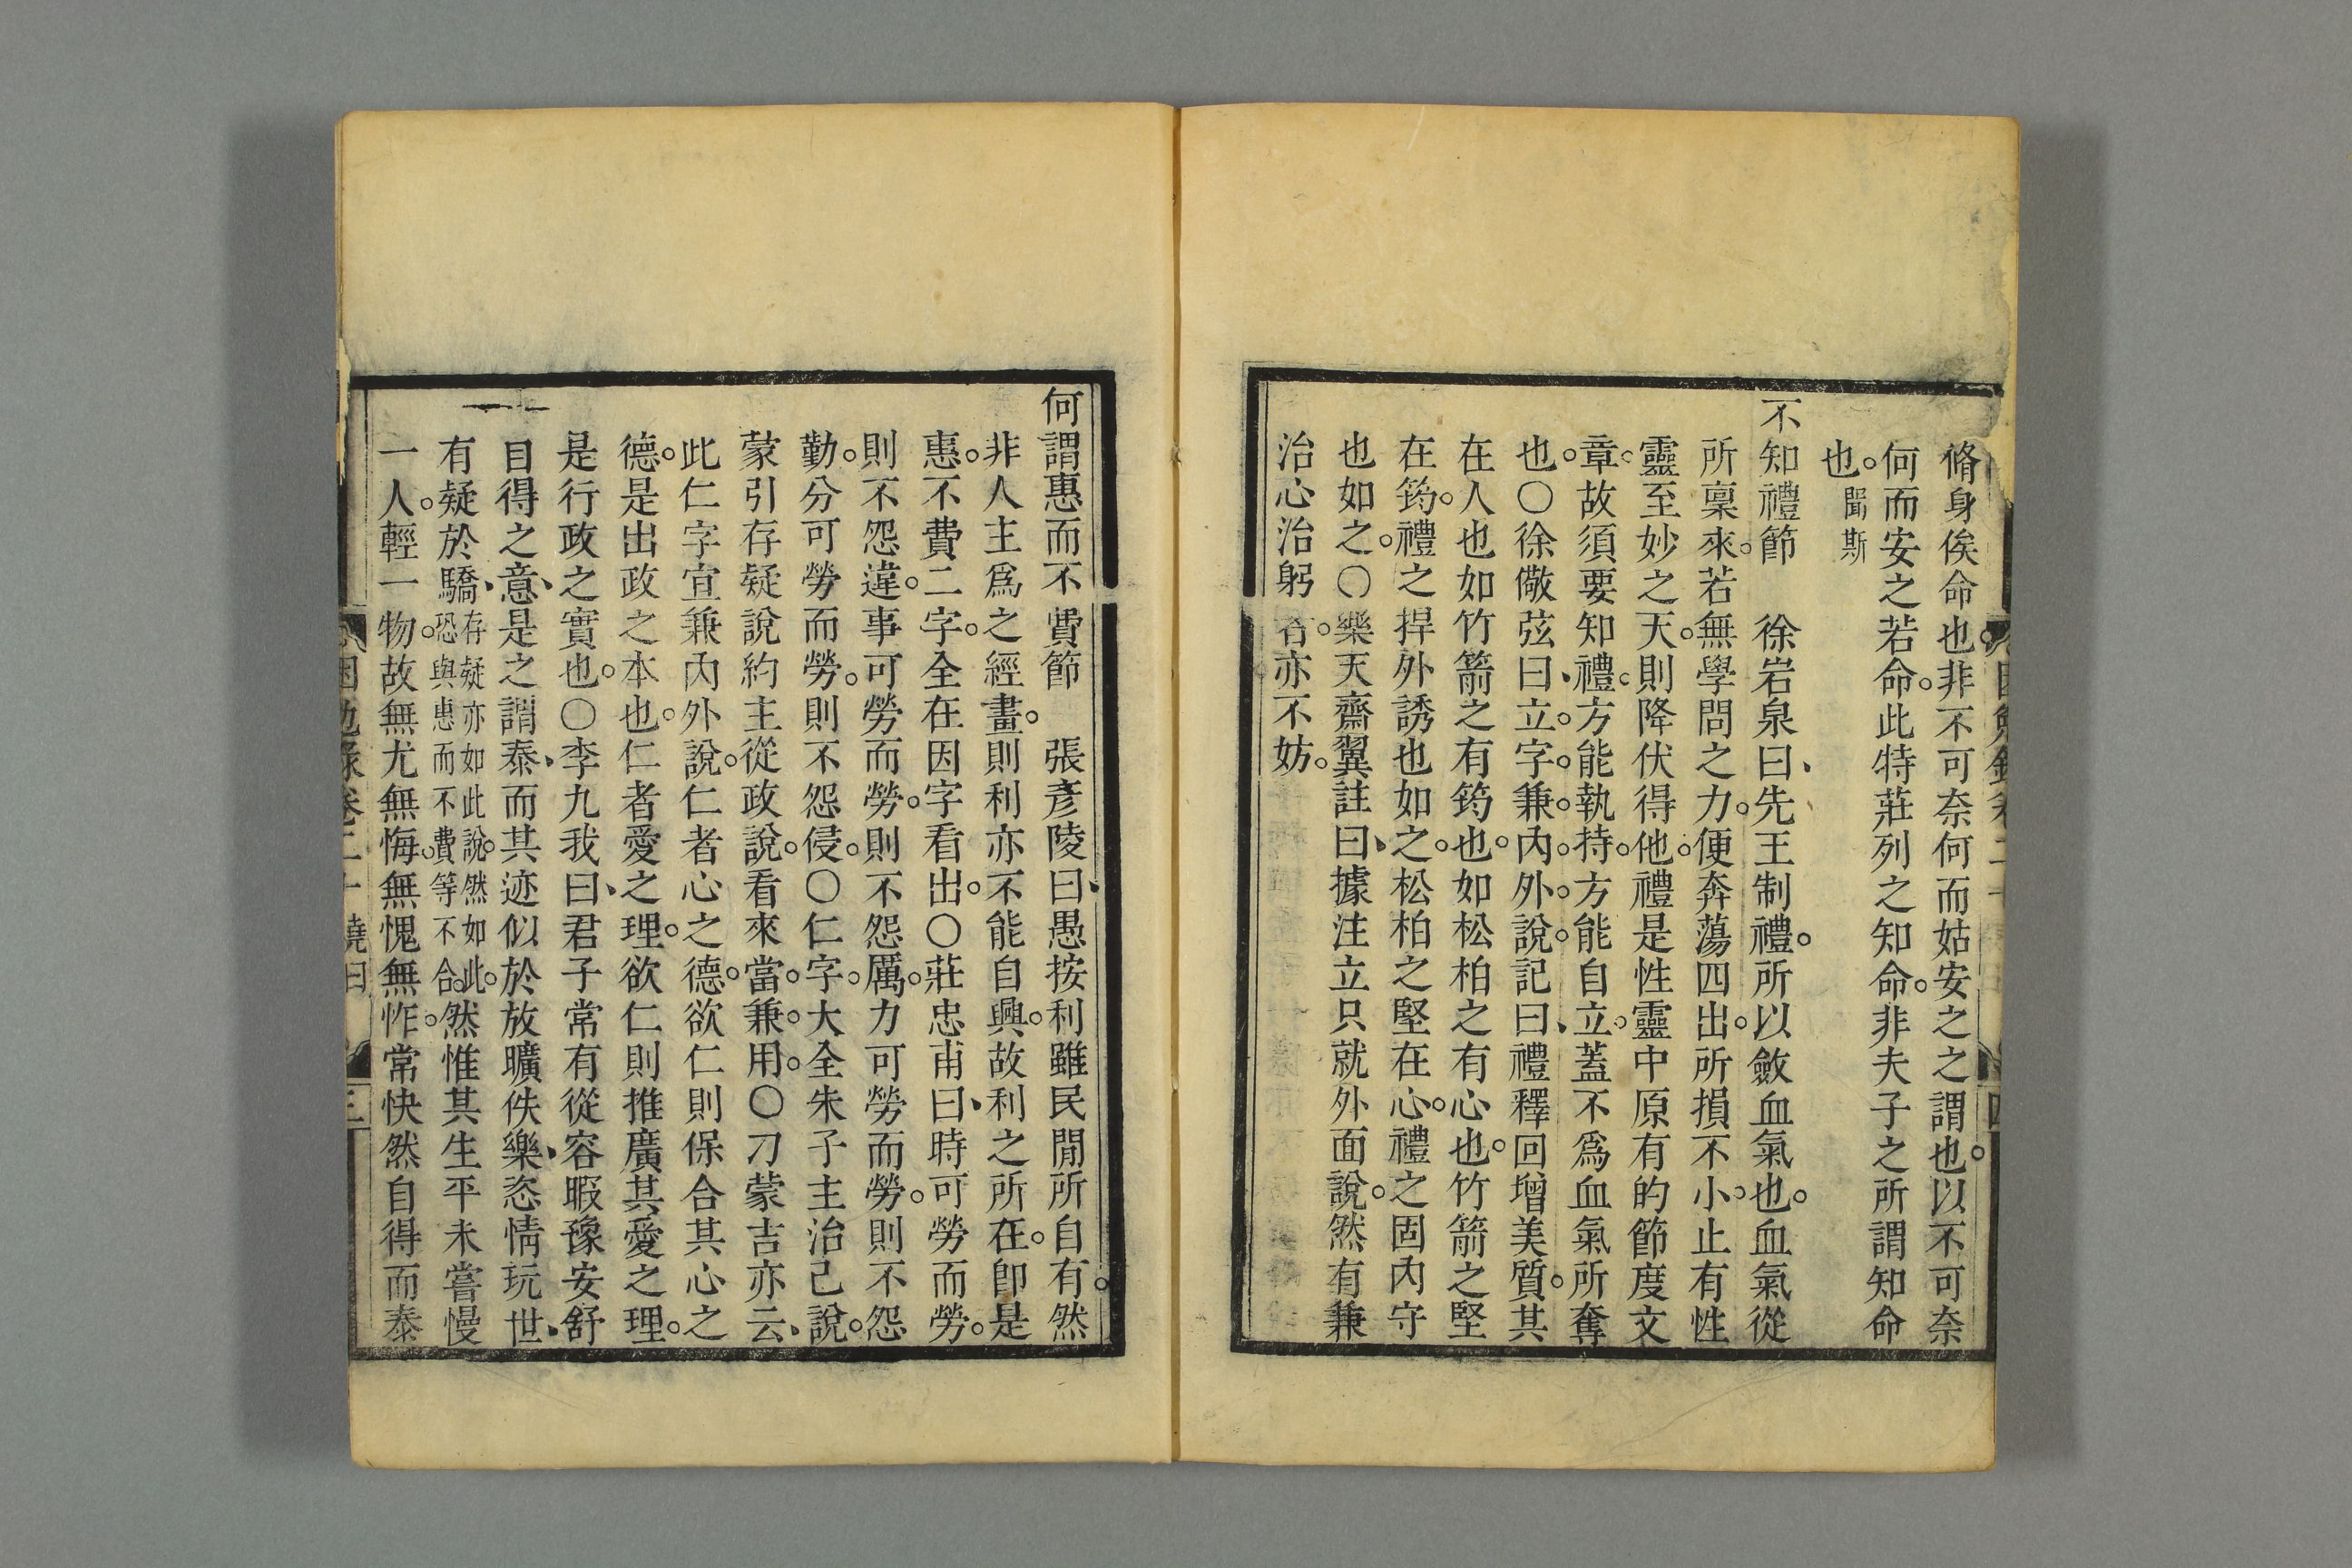 脩身俟命也。非不可奈何而姑安之之謂也。以不可奈
何而安之若命。此特莊列之知命。非夫子之所謂知命
也。聞斯
不知禮節　徐岩泉曰、先王制禮。所以斂血氣也。血氣從
所稟來。若無學問之力。便奔蕩四出。所損不小。止有性
靈至妙之天。則降伏得他。禮是性靈中原有的節度文
章。故須要知禮。方能執持。方能自立。蓋不爲血氣所奪
也。〇徐儆弦曰、立字兼內外說。記曰、禮釋回增美質。其
在人也如竹箭之有筠也。如松柏之有心也。竹箭之堅
在筠。禮之捍外誘也如之。松柏之堅在心。禮之固內守
也如之。〇樂天齋翼註曰、據注立只就外面說。然有兼
治心治躬者。亦不妨。
何謂惠而不費節　張彥陵曰、愚按利雖民間所自有。然
非人主爲之經畫。則利亦不能自興。故利之所在。卽是
惠。不費二字。全在因字看出。〇莊忠甫曰、時可勞而勞。
則不怨違。事可勞而勞。則不怨厲。力可勞而勞。則不怨
勤。分可勞而勞。則不怨侵。〇仁字。大全朱子主治己說。
蒙引存疑說約主從政說。看來當兼用。〇刁蒙吉亦云、
此仁字宜兼內外說。仁者心之德。欲仁則保合其心之
德。是出政之本也。仁者愛之理。欲仁則推廣其愛之理。
是行政之實也。〇李九我曰、君子常有從容暇豫安舒
自得之意、是之謂泰、而其迹似於放曠佚樂、恣情玩世、
有疑於驕、存疑亦如此說。然如此。恐與惠而不費等不合。然惟其生平未嘗慢
一人。輕一物。故無尤無悔。無愧無怍。常快然自得而泰
困勉錄卷二十 堯曰 三